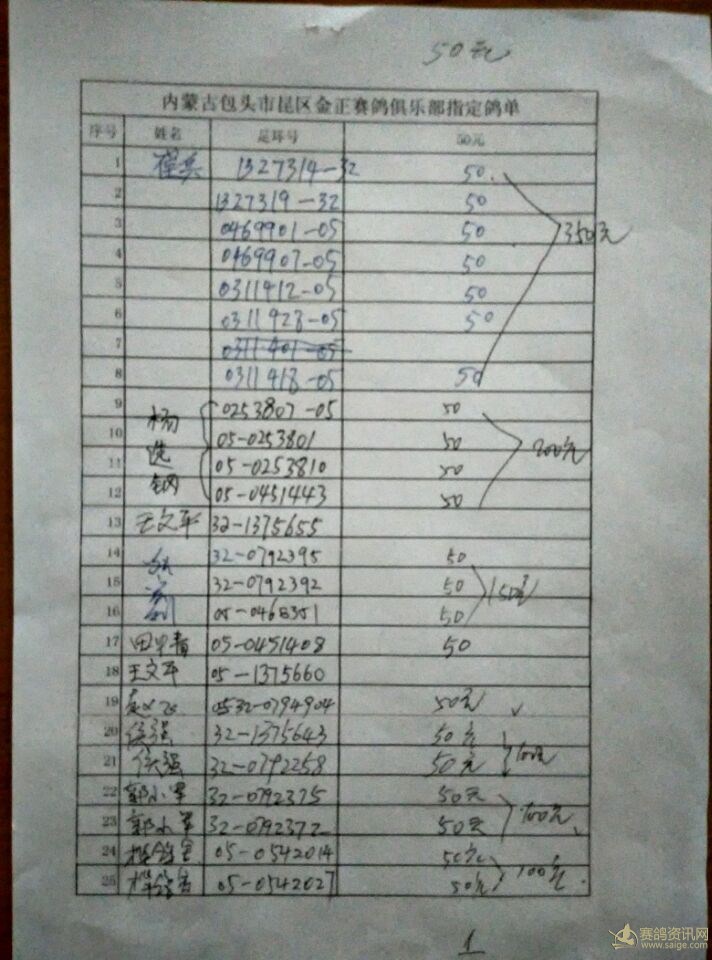 50元
内蒙古包头市昆区金正赛鸽俱乐部指定鸽单
序号 姓名 足环号 50元
1 1327314-32 50
2 1327319-32 50
3 0469901-05 50
4 0469907-05 50
350元
5 0311412-05 50
6 0311928-05 50
7 0311401-05
8 0311418-05 50
9 杨 0253807-05 50
10 05-0253801 50
200元
11 05-0253810 50
12 钢 05-0451443 50
13 王文平 32-1375655
14 32-0792395 50
15 32-0792392 50
150元
16 05-0468351 50
17 05-0451408 50
18 王文平 05-1375660
19 0532-0794904 50元
20 侯强 32-1375643 50元
21 侯强 32-0792258 50元
100元
22 郭小军 32-0792375 50元
23 郭小军 32-0792372 50元
100元
24 05-0542014 50元
25 05-0542027 50元
100元
1
赛鸽资讯网
www.saige.com